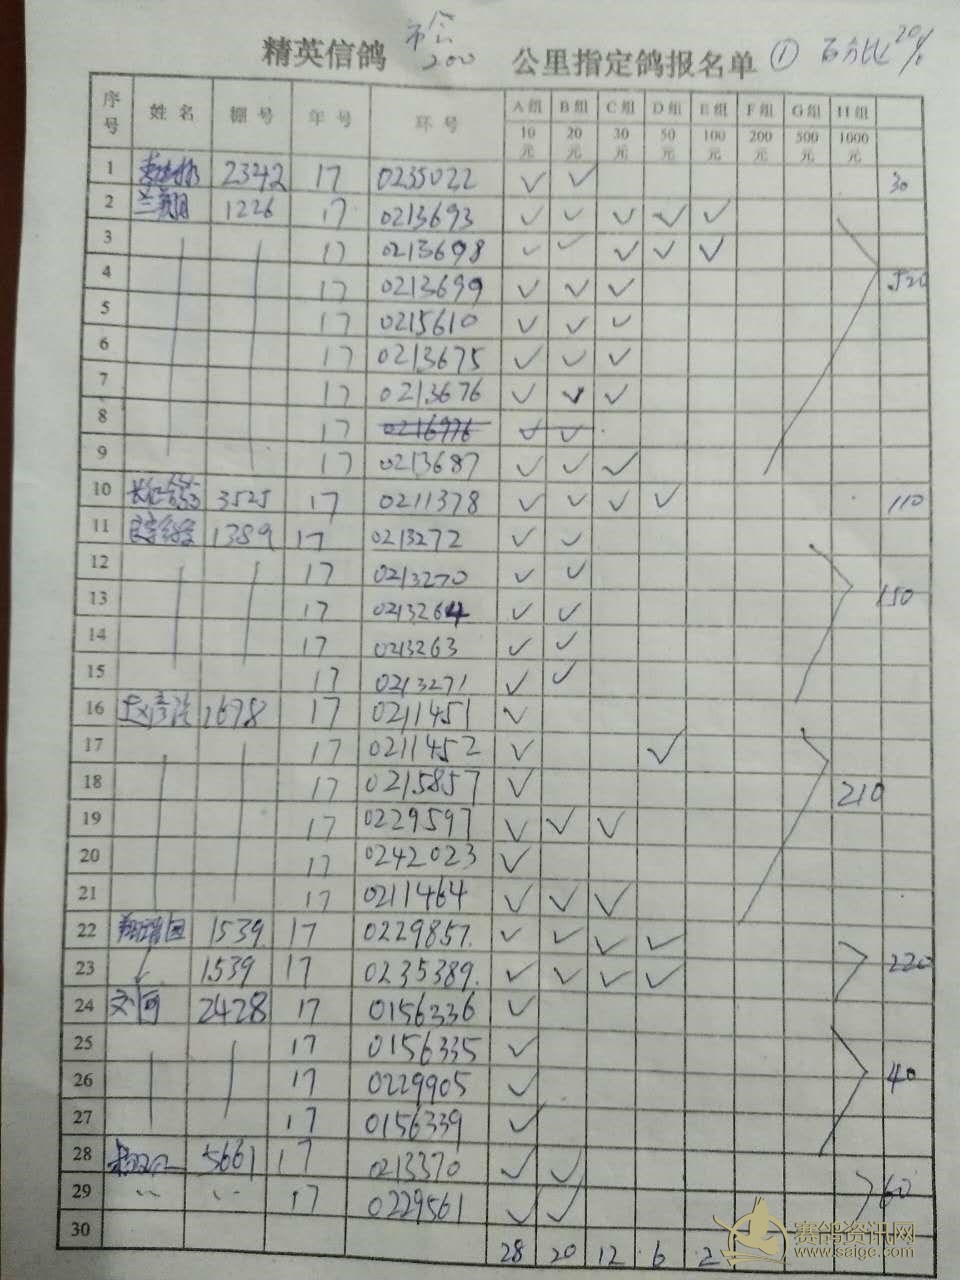 精英信鸽 市会 200 公里指定鸽报名单 ① 百分比 20%
序号 姓名 棚号 年号 环号 A组 B组 C组 D组 E组 F组 G组 H组
10元 20元 30元 50元 100元 200元 500元 1000元
1 2342 17 0235022 ✓ ✓ 30
2 兰翔 1226 17 0213693 ✓ ✓ ✓ ✓ ✓
3 17 0213698 ✓ ✓ ✓ ✓ ✓
4 17 0213699 ✓ ✓ ✓ 520
5 17 0215610 ✓ ✓ ✓
6 17 0213675 ✓ ✓ ✓
7 17 0213676 ✓ ✓ ✓
8 17 0216976 ✓ ✓
9 17 0213687 ✓ ✓ ✓
10 3525 17 0211378 ✓ ✓ ✓ ✓ 110
11 1389 17 0213272 ✓ ✓
12 17 0213270 ✓ ✓
13 17 0213264 ✓ ✓ 150
14 17 0213263 ✓ ✓
15 17 0213271 ✓ ✓
16 1698 17 0211451 ✓
17 17 0211452 ✓ ✓
18 17 0215857 ✓ 210
19 17 0229597 ✓ ✓ ✓
20 17 0242023 ✓
21 17 0211464 ✓ ✓ ✓
22 1539 17 0229857 ✓ ✓ ✓ ✓
23 1539 17 0235389 ✓ ✓ ✓ ✓ 220
24 文河 2428 17 0156336 ✓
25 17 0156335 ✓
26 17 0229905 ✓ 40
27 17 0156339 ✓
28 5661 17 0213370 ✓ ✓
29 17 0229561 ✓ ✓ 60
30 28 20 12 6 2
赛鸽资讯网
www.saigc.com